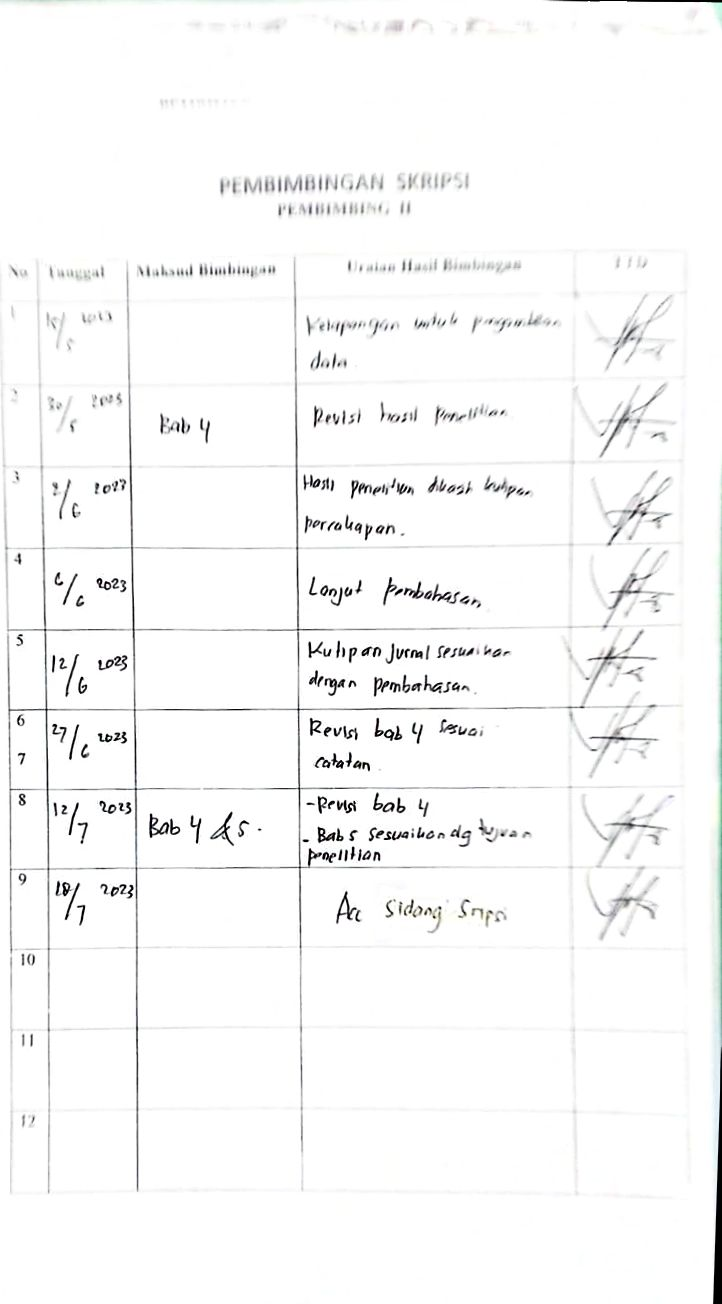 PEMBIMBINGAN SKRIPSI
PEMBIMBING II
No Tanggal Maksud Bimbingan Uraian Hasil Bimbingan TTD
1 15/5 2023 Kelapangan untuk pengambilan
data
2 30/5 2023 Bab 4 Revisi hasil penelitian
3 2/6 2023 Hasil penelitian dibuat kutipan
percakapan.
4 6/6 2023 Lanjut pembahasan
5 12/6 2023 Kutipan jurnal sesuaikan
dengan pembahasan.
6 27/6 2023 Revisi bab 4 sesuai
7 catatan
8 12/7 2023 Bab 4 & 5. - Revisi bab 4
- Bab 5 sesuaikan dg tujuan
penelitian
9 18/7 2023 Acc Sidang Sripsi
10
11
12